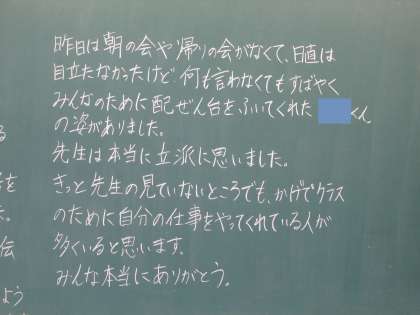 昨日は朝の会や帰りの会がなくて、日直は
目立たなかったけど、何も言わなくてもすばやく
みんなのために配ぜん台をふいてくれた くん
の姿がありました。
先生は本当に立派に思いました。
きっと先生の見ていないところでも、かげでクラス
のために自分の仕事をやってくれている人が
多くいると思います。
みんな本当にありがとう。
る
を
た。
伝
よう